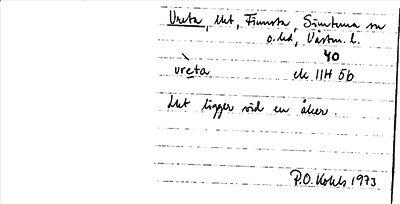 Vreta, Uet, Finnsta, Simtuna sn
o. hd, Västm. l.
40
vrèta ek 11H 5b
Uet ligger vid en åker.
P.O. Kohls 1973